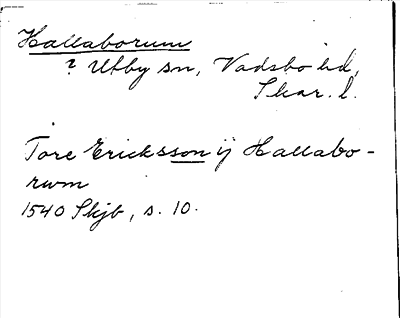 Hallaborum
? Utby sn, Vadsbo hd,
Skar. l.
Tore Ericksson ij Hallabo-
rum
1540 Skjb, s. 10.